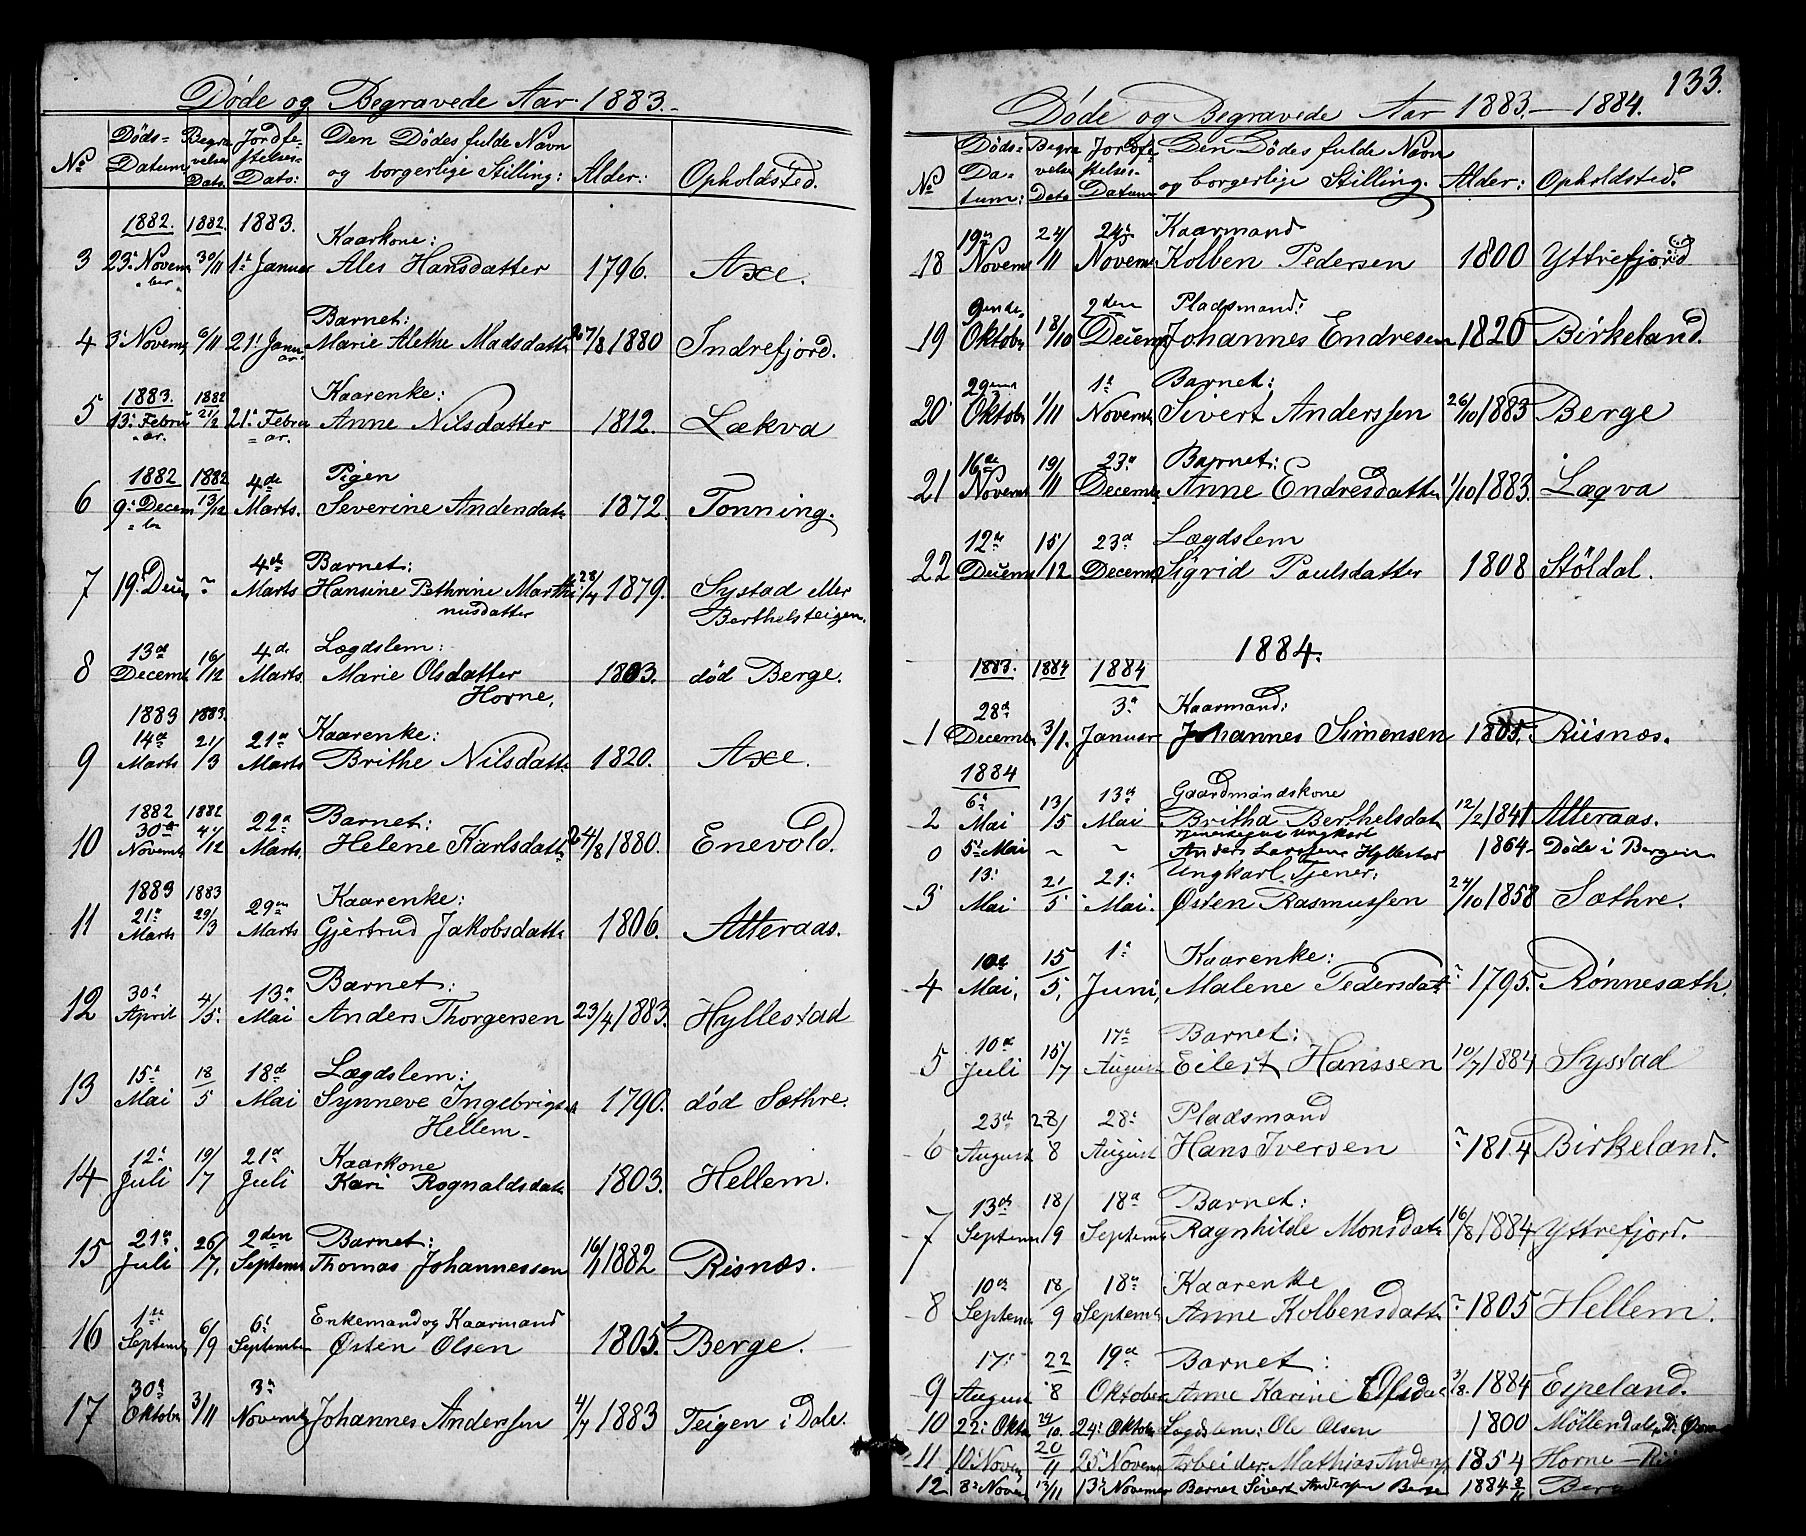 Døde og Begravede Aar 1883.-
No Døds-Datum Begravelses Dato Jordfæstelses-Dato: Den Dödes fulde Navn og borgerlige Stilling: Alder: Opholdsted.
1882. 1882. 1883. Kaarkone:
3 23: Novem ber 30/11 1ste Januar Ales Hansdatter 1796. Axe.
Barnet:
4 3: Novemb 6/11 21: Januar Marie Alethe Madsdatter 27/8 1880 Indrefjord.
1883. 1882 Kaarenke:
5 13: Februar 21/2 21: Februar Anne Nilsdatter 1812. Lækva
1882 1882 4de Pigen
6 9: December 13/12 Marts. Severine Andendatt 1872. Tonning.
4de Barnet:
7 19: Decem ~ Marts Hansine Pethrine Marthi 28/4 1879. Systad eller
nusdatter Berthelsteigen.
13de 16/12 4de Lægdslem:
8 Decemb Marts. Marie Olsdatter 1803. död Berge.
Horne,
1883 1883. Kaarenke:
9 14de Marts 21/3 21de Marts Brithe Nilsdatt 1820. Axe.
1882 1882 Barnet:
10 30te Novemb 4/12 22de Marts. Helene Karlsdatt 24/8 1880. Enevold.
1883 1883 Kaarenke:
11 21de Marts 29/3 29de Marts Gjertrud Jakobsdatt 1806. Atteraas.
Barnet:
12 30te April 4/5. 13de Mai Anders Thorgersen 23/4 1883. Hyllestad
Lægdslem:
13 15de Mai 18/5 18de Mai Synneve Ingebrigtd 1790. död Sæthre.
Hellem-
Kaarkone
14 12te Juli 19/7 21de Juli Kari Rognaldsdatt 1803. Hellem.
Barnet:
15 21de Juli 26/7. 2den Septemb Thomas Johannessen 16/11 1882 Risnæs.
Enkemand og Kaarmand
16 1ste Septemb 6/9 6te September Østen Olsen 1805. Berge.
17 30te Oktober 3/11 3de Novemb Johannes Anderssen 4/7 1883 Teigen i Dale.
133.
Døde og Begravede Aar 1883.-1884.
No Døds-Datum: Begravelses Dato Jordfæstelses-Datum Den Dödes fulde Navn og borgerlige Stilling. Alder: Opholdsted.
19de 24/11 24de Kaarmand
18 Novemb Novemb Kolben Pedersen 1800 Yttrefjord
9ende 2den Pladsmand:
19 Oktober 18/10 Decemb Johannes Endresen 1820 Birkeland.
29ende 1ste Barnet:
20 Oktober 1/11 Novemb Sivert Anderssen 26/10 1883 Berge
16de 19/11 23de Barnet:
21 Novemb Decemb Anne Endresdatter 1/10 1883. Lægva
12te 15/12 23de Lægdslem
22 Decemb Decemb Sigrid Paulsdatter 1808 Stöldal.
1884.
1883. 1884 1884
28de 3de Kaarmand:
1 Decemb 3/1. Januar Johannes Simensen 1805. Riisnæs.
1884
6te 13/5 13de Gaardmandskone
2 Mai Mai Britha Berthelsdatt 12/2 1841 Atteraas.
Ungkarl
0 5te Mai ~ ~ Anders Larssen Hyllestad 1864- Døde i Bergen
13: 21/5 21: Ungkarl. Tjener:
3 Mai Mai. Østen Rasmussen 24/10 1858 Sæthre.
10de 15/5. 1ste Kaarenke:
4 Mai, Juni, Malene Pedersdatt ~ 1795. Rønnesæth.
10de 15/7 17de Barnet:
5 Juli August Eilert Hanssen 10/7 1884 Systad
23de 28/8 28: Pladsmand
6 August August Hans Iversen ~ 1814 Birkeland.
13de 18/9 18de Barnet:
7 Septemb Septemb Ragnhilde Monsdatt 16/8 1884 Yttrefjord.
10de 18/9 18de Kaarenke
8 Septemb Septemb Anne Kolbensdatt ~ 1805 Hellem.
17: 22/8 19de Barnet:
9 August Oktober Anne Karine Olsdat 3/8. 1884 Espeland.
10 22: Oktb 24/10. 24: Oktobr Lægdslem: Ole Olsen 1800 Möllendal,
11 10: Novem 20/11 25: Novemb Arbeider: Mathias Anders 1854 Horne
12 8: Novem 13/11 13: Novemer Barnet Sivert Anderssen Berge 1884 8/11